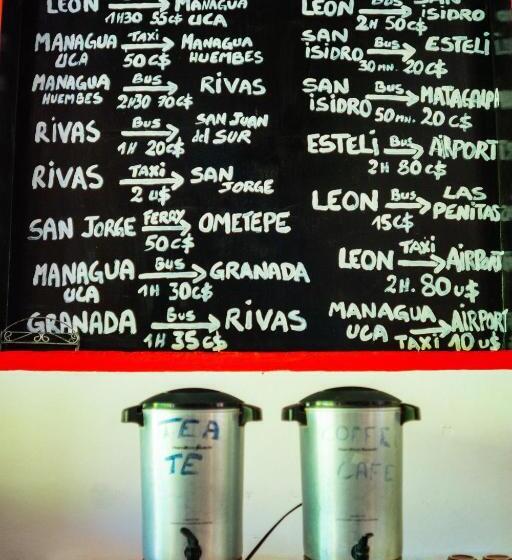 LEON Bus → MANAGUA
1H30 55c$ UCA
MANAGUA TAXi → MANAGUA
UCA 50C$ HUEMBES
MANAGUA Bus → RiVAS
HUEMBES 2H30 70c$
RiVAS Bus → SAN JUAN
1H 20c$ del SUR
RiVAS TAXI → SAN
2 u$ JORGE
SAN JORGE FERRY → OMETEPE
50C$
MANAGUA Bus → GRANADA
UCA 1H 30C$
GRANADA Bus → RiVAS
1H 35C$
LEON Bus → SAN
2H 50C$ iSiDRO
SAN Bus → ESTELi
iSiDRO 30MN. 20C$
SAN Bus → MATAGALPA
iSiDRO 50MN. 20C$
ESTELi Bus → AiRPORT
2H 80C$
LEON Bus → LAS
15C$ PENiTAS
LEON TAXI → AiRPORT
2H. 80 u$
MANAGUA → AiRPORT
UCA TAXI 10 U$
TEA
TE
COFFE
CAFE